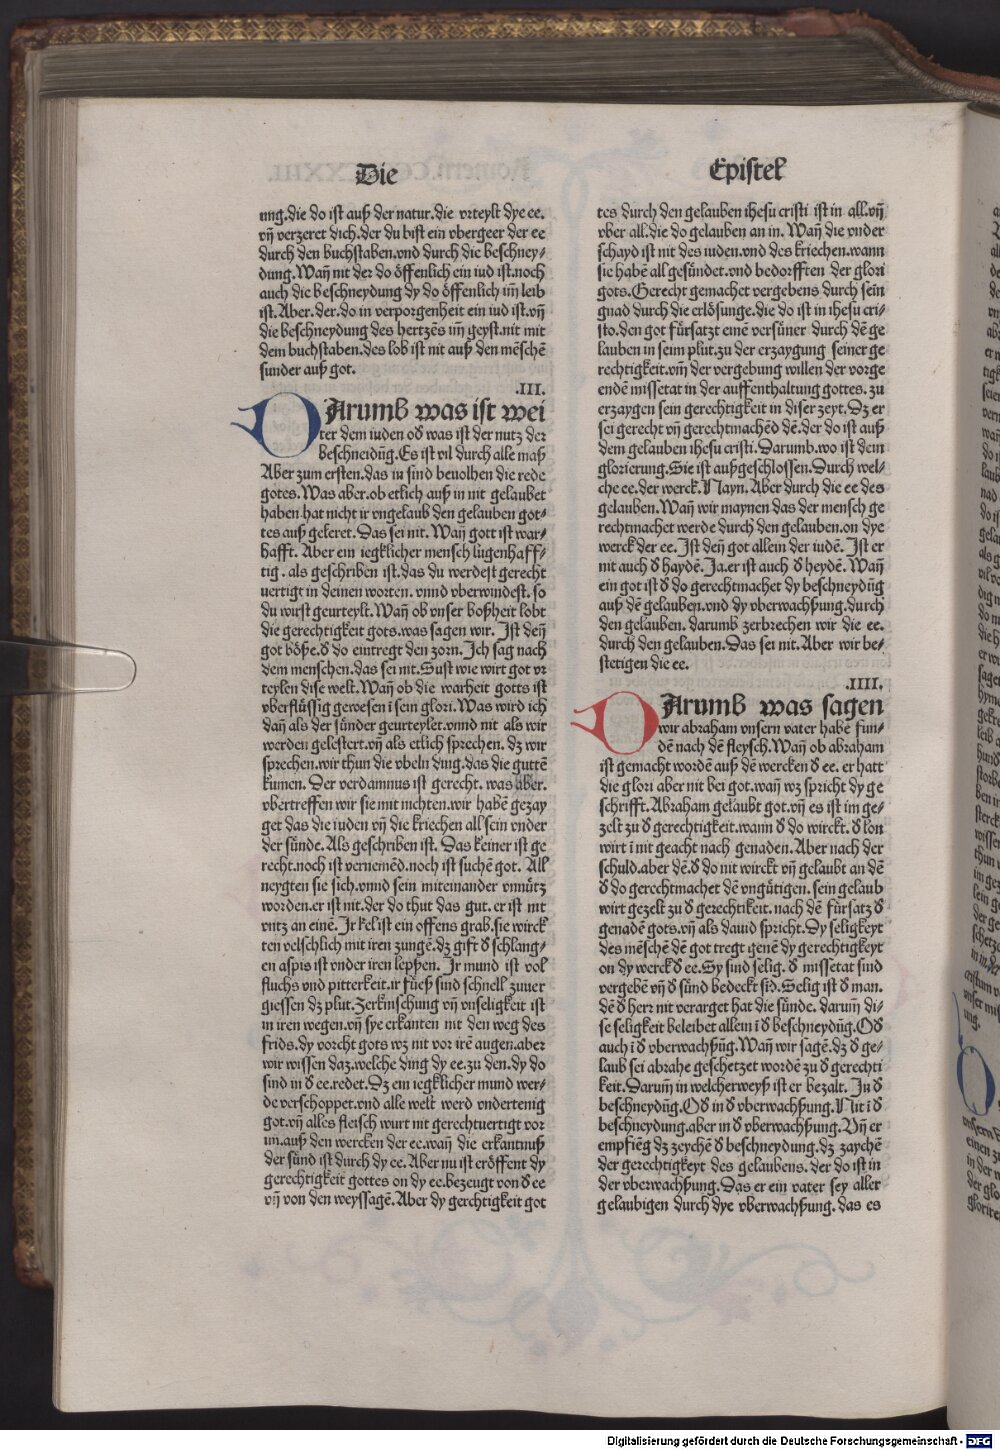 Die
Epistel
ung.die do ist auß der natur.die vrteylt dye ee.
vn̄ verzeret dich.der du bist ein vbergeer der ee
durch den buchstaben.vnd durch die beschney-
dung.Wañ nit der do öffenlich ein iud ist.noch
auch die beschneydung dy do öffenlich im̄ leib
ist.Aber.der.do in verporgenheit ein iud ist.vn̄
die beschneydung des hertzēs im̄ geyst.nit mit
dem buchstaben.des lob ist nit auß den mēschē
sunder auß got.
.III.
DArumb was ist wei
ter dem iuden od̄ was ist der nutz der
beschneidūg.Es ist vil durch alle maß
Aber zum ersten.das in sind beuolhen die rede
gotes.Was aber.ob etlich auß in nit gelaubet
haben.hat nicht ir vngelaub den gelauben got-
tes auß gekeret.Das sei nit.Wañ gott ist war-
hafft.Aber ein iegklicher mensch lugenhaff-
tig.als geschriben ist.das du werdest gerecht
uertigt in deinen worten.vnnd vberwindest.so
du wurst geurteylt.Wañ ob vnser boßheit lobt
die gerechtigkeit gots.was sagen wir.Ist deñ
got böße.d̄ do eintregt den zorn.Ich sag nach
dem menschen.das sei nit.Sust wie wirt got vr
teylen dise welt.Wañ ob die warheit gotts ist
vberflüssig gewesen ī sein glori.Was wird ich
dañ als der sünder geurteylet.vnnd nit als wir
werden gelestert.vn̄ als etlich sprechen.dz wir
sprechen.wir thun die vbeln ding.das die guttē
kumen.Der verdamnus ist gerecht.was aber.
vbertreffen wir sie mit nichten.wir habē gezay
get das die iuden vn̄ die kriechen all sein vnder
der sünde.Als geschriben ist.Das keiner ist ge
recht.noch ist vernemēd.noch ist suchē got.All
neygten sie sich.vnnd sein miteinander vnnütz
worden.er ist nit.der do thut das gut.er ist nit
vntz an einē.Ir kel ist ein offens grab.sie wirck
ten velschlich mit iren zungē.dz gift d̄ schlang-
en aspis ist vnder iren lepsen.Ir mund ist vol
fluchs vnd pitterkeit.ir füeß sind schnell zuuer
giessen dz plut.Zerknischung vn̄ vnseligkeit ist
in iren wegen.vn̄ sye erkanten nit den weg des
frids.dy vorcht gots wz nit vor irē augen.aber
wir wissen daz.welche ding dy ee.zu den.dy do
sind in d̄ ee.redet.Dz ein iegklicher mund wer-
de verschoppet.vnd alle welt werd vndertenig
got.vn̄ alles fleisch wurt nit gerechtuertigt vor
im.auß den wercken der ee.wañ die erkantnuß
der sünd ist durch dy ee.Aber nu ist eröffent dy
gerechtigkeit gottes on dy ee.bezeugt von d̄ ee
vn̄ von den weyssagē.Aber dy gerchtigkeit got
tes durch den gelauben ihesu cristi ist in all.vn̄
vber all.die do gelauben an in.Wañ die vnder
schayd ist nit des iuden.vnd des kriechen.wann
sie habē all gesündet.vnd bedorfften der glori
gots.Gerecht gemachet vergebens durch sein
gnad durch die erlösunge.die do ist in ihesu cri-
sto.den got fürsatzt einē versüner durch dē ge
lauben in seim plut.zu der erzaygung seiner ge
rechtigkeit.vm̄ der vergebung willen der vorge
endē missetat in der auffenthaltung gottes.zu
erzaygen sein gerechtigkeit in diser zeyt.Dz er
sei gerecht vn̄ gerechtmachēd dē.der do ist auß
dem gelauben ihesu cristi.Darumb.wo ist dein
glorierung.Sie ist außgeschlossen.Durch wel-
che ee.der werck.Nayn.Aber durch die ee des
gelauben.Wañ wir maynen das der mensch ge
rechtmachet werde durch den gelauben.on dye
werck der ee.Ist deñ got allein der iudē.Ist er
nit auch d̄ haydē.Ja.er ist auch d̄ heydē.Wañ
ein got ist d̄ do gerechtmachet dy beschneydūg
auß dē gelauben.vnd dy vberwachsung.durch
den gelauben.darumb zerbrechen wir die ee.
durch den gelauben.Das sei nit.Aber wir be-
stetigen die ee.
.IIII.
DArumb was sagen
wir abraham vnsern vater habē fun-
dē nach dē fleysch.Wañ ob abraham
ist gemacht wordē auß dē wercken d̄ ee.er hatt
die glori aber nit bei got.wañ wz spricht dy ge
schrifft.Abraham gelaubt got.vn̄ es ist im ge-
zelt zu d̄ gerechtigkeit.wann d̄ do wirckt.d̄ lon
wirt ī nit geacht nach genaden.Aber nach der
schuld.aber dē.d̄ do nit wirckt vn̄ gelaubt an dē
d̄ do gerechtmachet dē vngütigen.sein gelaub
wirt gezelt zu d̄ gerechtikeit.nach dē fürsatz d̄
genadē gots.vn̄ als dauid spricht.Dy seligkeyt
des mēschē dē got tregt genē dy gerechtigkeyt
on dy werck d̄ ee.Sy sind selig.d̄ missetat sind
vergebē vn̄ d̄ sünd bedeckt sīd.Selig ist d̄ man.
dē d̄ herr nit verarget hat die sünde.darum̄ di-
se seligkeit beleibet allein ī d̄ beschneydūg.Od̄
auch ī d̄ vberwachsūg.Wañ wir sagē.dz d̄ ge-
laub sei abrahe geschetzet wordē zu d̄ gerechti
keit.Darum̄ in welcherweyß ist er bezalt.In d̄
beschneydūg.Od̄ in d̄ vberwachsung.Nit ī d̄
beschneydung.aber in d̄ vberwachsung.Vn̄ er
empfieng dz zeychē d̄ beschneydung.dz zaychē
der gerechtigkeyt des gelaubens.der do ist in
der vberwachsung.Das er ein vater sey aller
gelaubigen durch dye vberwachsung.das es
Digitalisierung gefördert durch die Deutsche Forschungsgemeinschaft - DFG